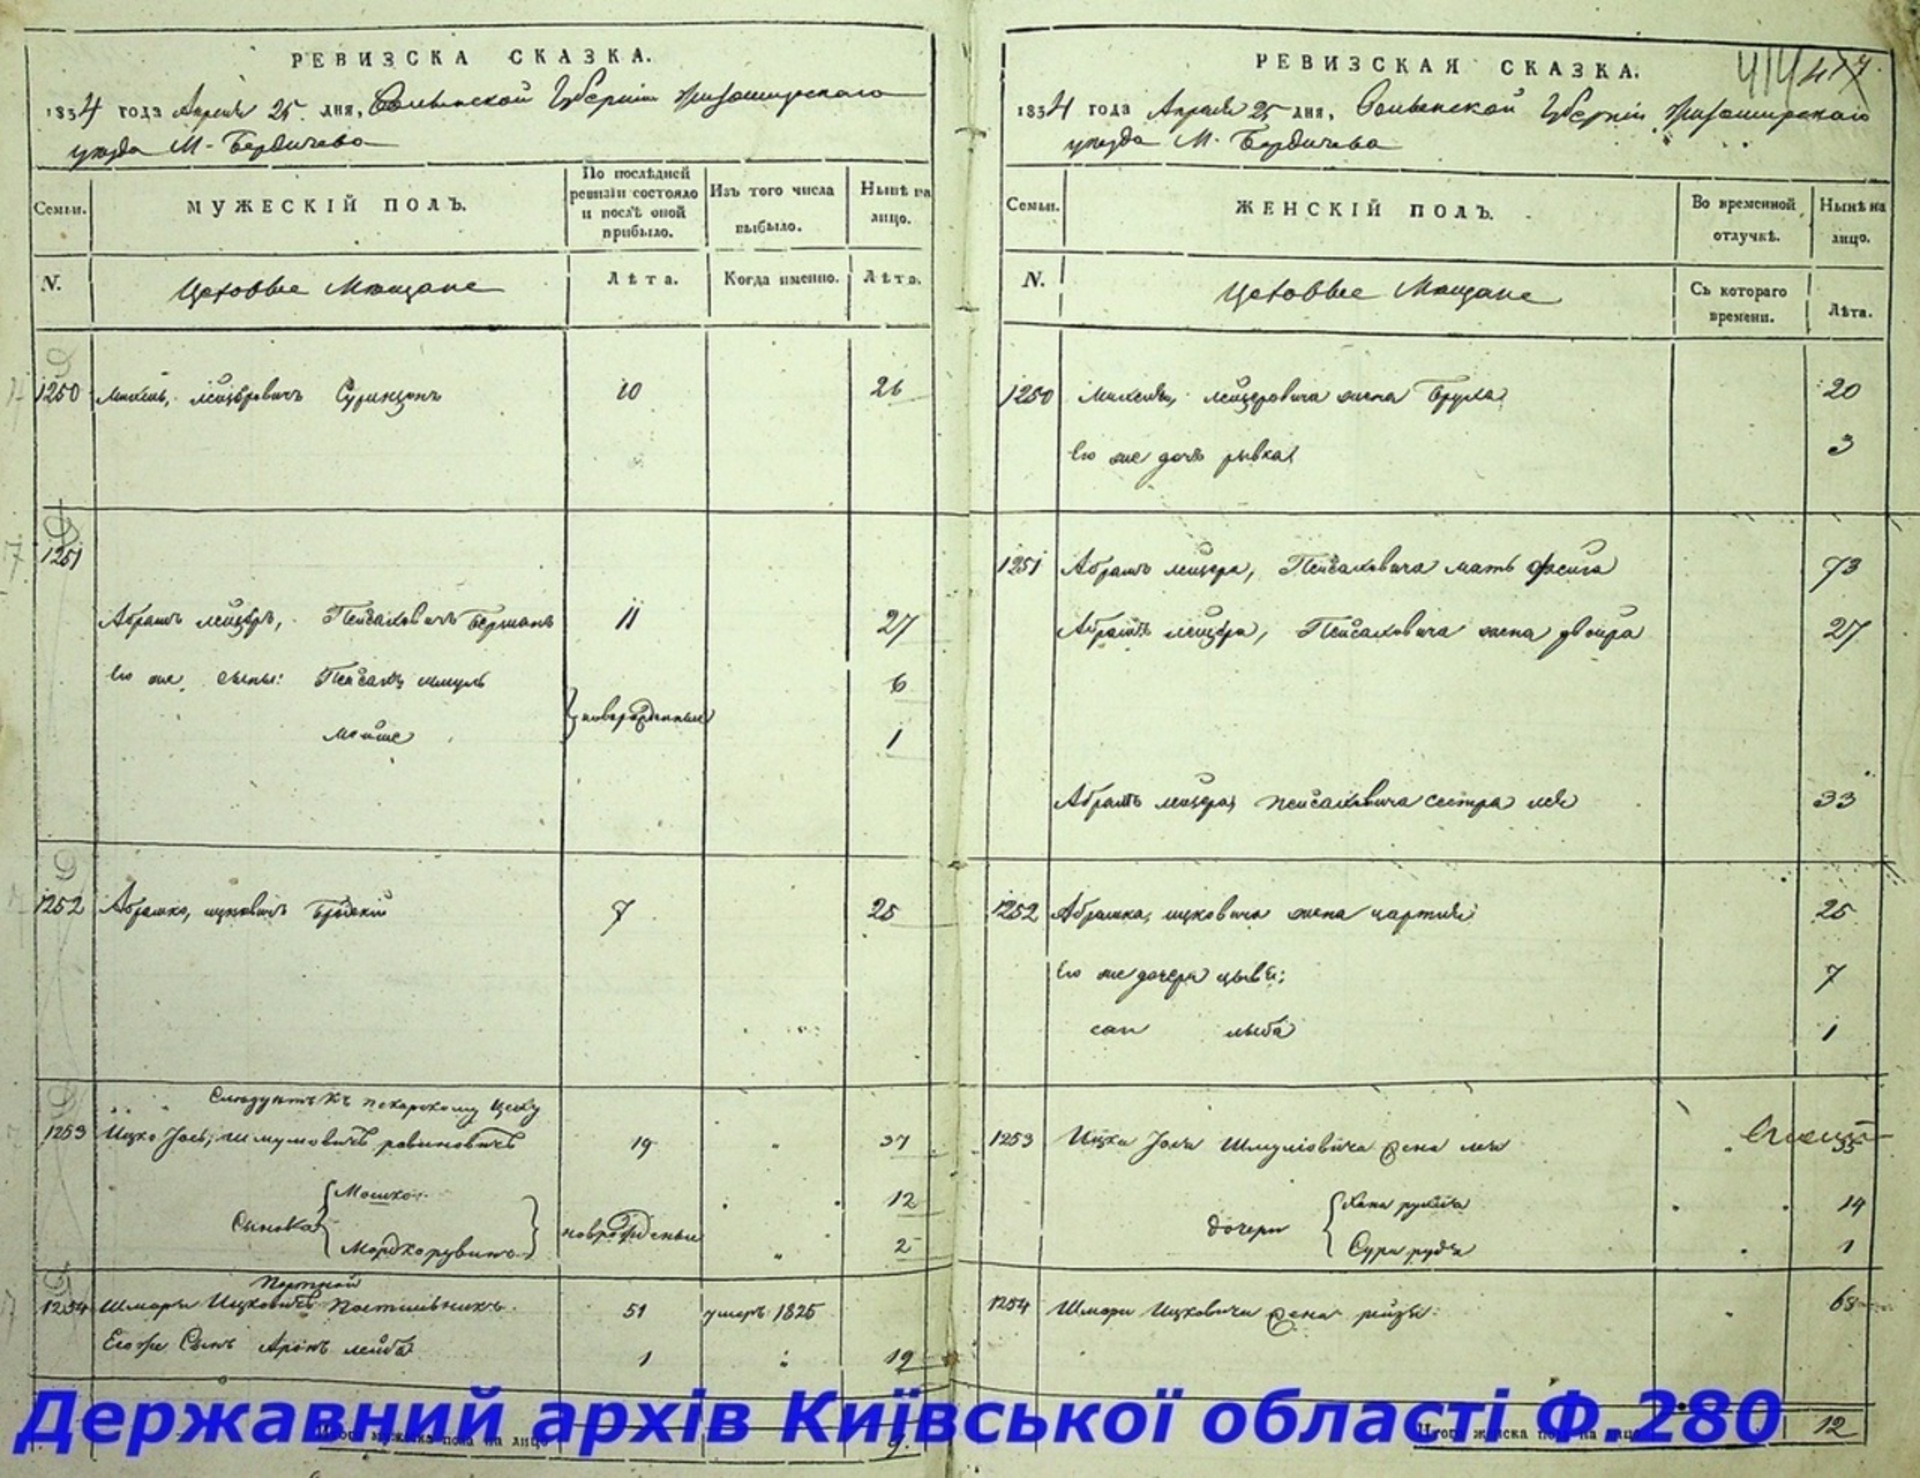 РЕВИЗСКА СКАЗКА.
1834 года Апреля 25 дня, Волынской Губернии Житомирского
уезда М. Бердичева
Семьи.
МУЖЕСКІЙ ПОЛЪ.
По послѣдней ревизіи состояло и послѣ оной прибыло.
Изъ того числа выбыло.
Нынѣ на лицо.
N.
Цеховые Мещане
Лѣта.
Когда именно.
Лѣта.
1250 лейзеровичъ 10 26
1251
Абрамъ лейзеръ, Пейсаховичъ Берманъ 11 27
Его же сыны: Пейсахъ шмуль 6
новорожденные
мойше 1
1252 Абрамко, ицковичъ Бродскій 7 25
Следуютъ къ пекарскому цеху
1253 Ицко Іось, шмулiовичъ рабиновичъ 19 " 31
Мошко 12
Сыновья новорожденные
Мордко рувинъ " 2
Портной
1254 Шмарья Ицковичъ 51 умеръ 1825
Его же Сынъ Аронъ лейба 1 " 19
Итого мужеска пола на лицо 9.
РЕВИЗСКАЯ СКАЗКА.
414
1834 года Апреля 25 дня, Волынской Губернии Житомирского
уезда М. Бердичева
Семьи.
ЖЕНСКІЙ ПОЛЪ.
Во временной отлучкѣ.
Нынѣ на лицо.
N.
Цеховые Мещане
Съ котораго времени.
Лѣта.
1250 лейзеровича жена Бруха 20
Его же дочь рывка 3
1251 Абрамъ лейзера, Пейсаховича мать фейга 73
Абрамъ лейзера, Пейсаховича жена двойра 27
Абрамъ лейзера, пейсаховича сестра лея 33
1252 Абрамка, ицковича жена 25
Его же дочери цывья: 7
лыба 1
1253 Ицка Іося Шмулiовича жена лея 35
Хана рухля 14
дочери
Сура рудя 1
1254 Шмари Ицковича жена рейзя 68
Итого женска пола на лицо 12
Державний архів Київської області Ф.280